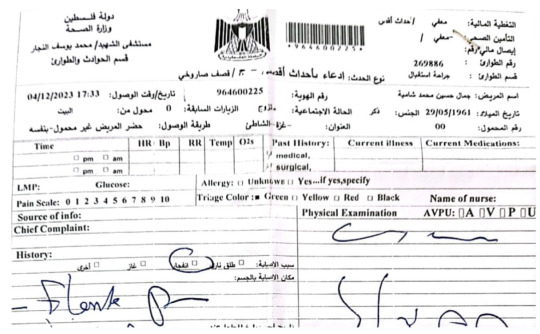 دولة فلسطين
وزارة الصحة
مستشفى الشهيد/ محمد يوسف النجار
قسم الحوادث والطوارئ
التغطية المالية: معفي / أحداث أقصى
التأمين الصحي: -معفي /
إيصال مالي/رقم:
*964600225*
رقم الطوارئ: 269886
قسم الطوارئ: جراحة استقبال
نوع الحدث: إدعاء بأحداث أقصى / قصف صاروخي
اسم المريض: جمال حسين محمد شامية
رقم الهوية: 964600225
تاريخ/وقت الوصول: 04/12/2023 17:33
تاريخ الميلاد: 29/05/1961 الجنس: ذكر الحالة الاجتماعية: متزوج الزيارات السابقة: 0 محول من: البيت
رقم المحمول: 00 العنوان: -غزة-الشاطئ طريقة الوصول: حضر المريض غير محمول-بنفسه
Time HR/ Bp RR Temp O2s Past History: Current illness Current Medications:
□ pm □ am medical,
□ pm □ am surgical,
LMP: Glucose: Allergy: □ Unknown □ Yes...if yes,specify
Pain Scale: 0 1 2 3 4 5 6 7 8 9 10 Triage Color: ■ Green □ Yellow □ Red □ Black Name of nurse:
Source of info: Physical Examination AVPU: □A □V □P □U
Chief Complaint:
History:
سبب الاصابة: □ طلق ناري □ انفجار □ غاز □ أخرى
مكان الاصابة بالجسم: